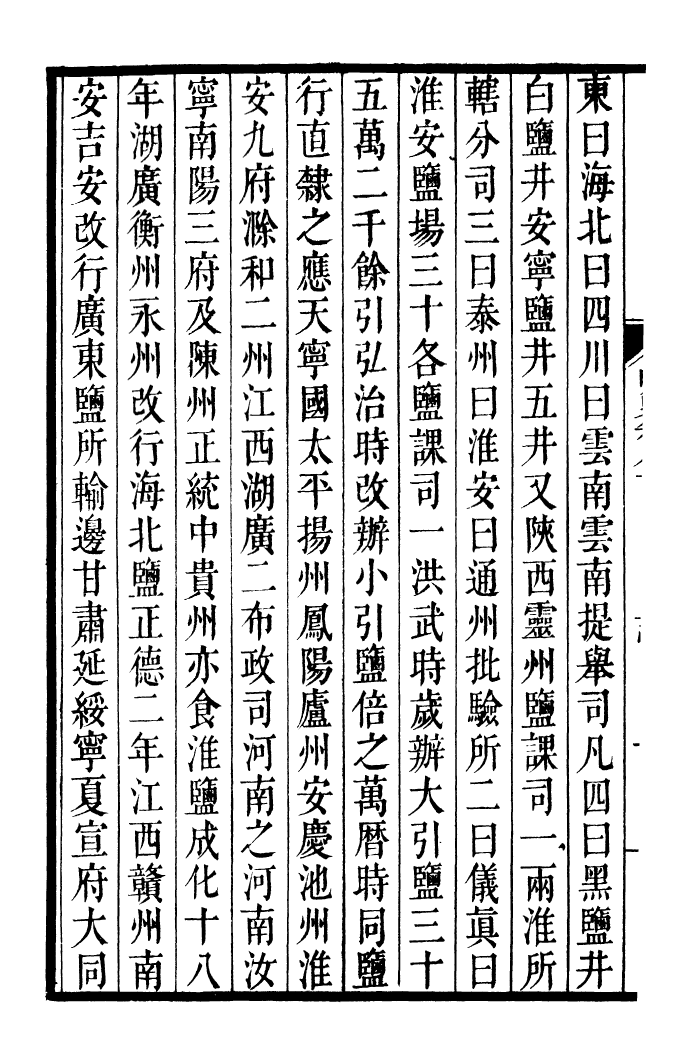 東曰海北曰四川曰雲南雲南提舉司凡四曰黑鹽井
白鹽井安寧鹽井五井又陝西靈州鹽課司一兩淮所
轄分司三曰泰州曰淮安曰通州批驗所二曰儀眞曰
淮安鹽場三十各鹽課司一洪武時歲辦大引鹽三十
五萬二千餘引弘治時改辦小引鹽倍之萬曆時同鹽
行直隸之應天寧國太平揚州鳳陽廬州安慶池州淮
安九府滁和二州江西湖廣二布政司河南之河南汝
寧南陽三府及陳州正統中貴州亦食淮鹽成化十八
年湖廣衡州永州改行海北鹽正德二年江西贛州南
安吉安改行廣東鹽所輸邊甘肅延綏寧夏宣府大同